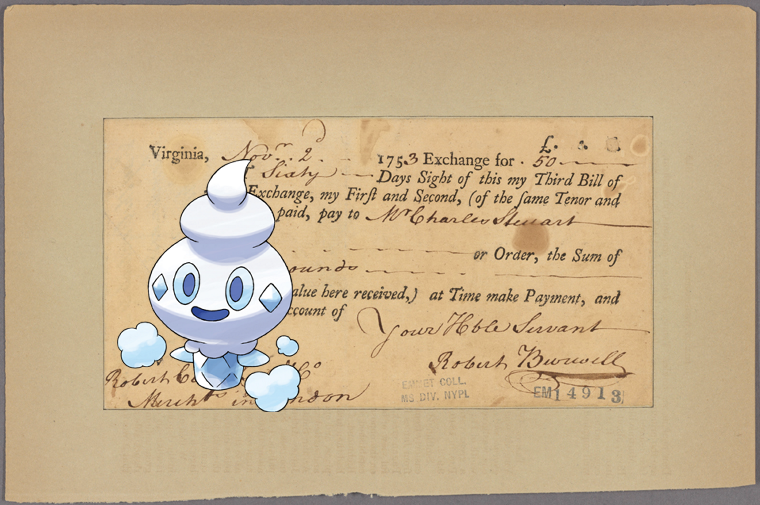 £.
Virginia, Novr. 2d 1753 Exchange for 50
Sixty Days Sight of this my Third Bill of
Exchange, my First and Second, (of the same Tenor and
paid, pay to Mr Charles Steuart
or Order, the Sum of
ounds
alue here received,) at Time make Payment, and
ccount of
Your Hble Servant
Robert Burwell
Robert Co
Merchts in London
EMMET COLL.
MS DIV. NYPL
EM14913